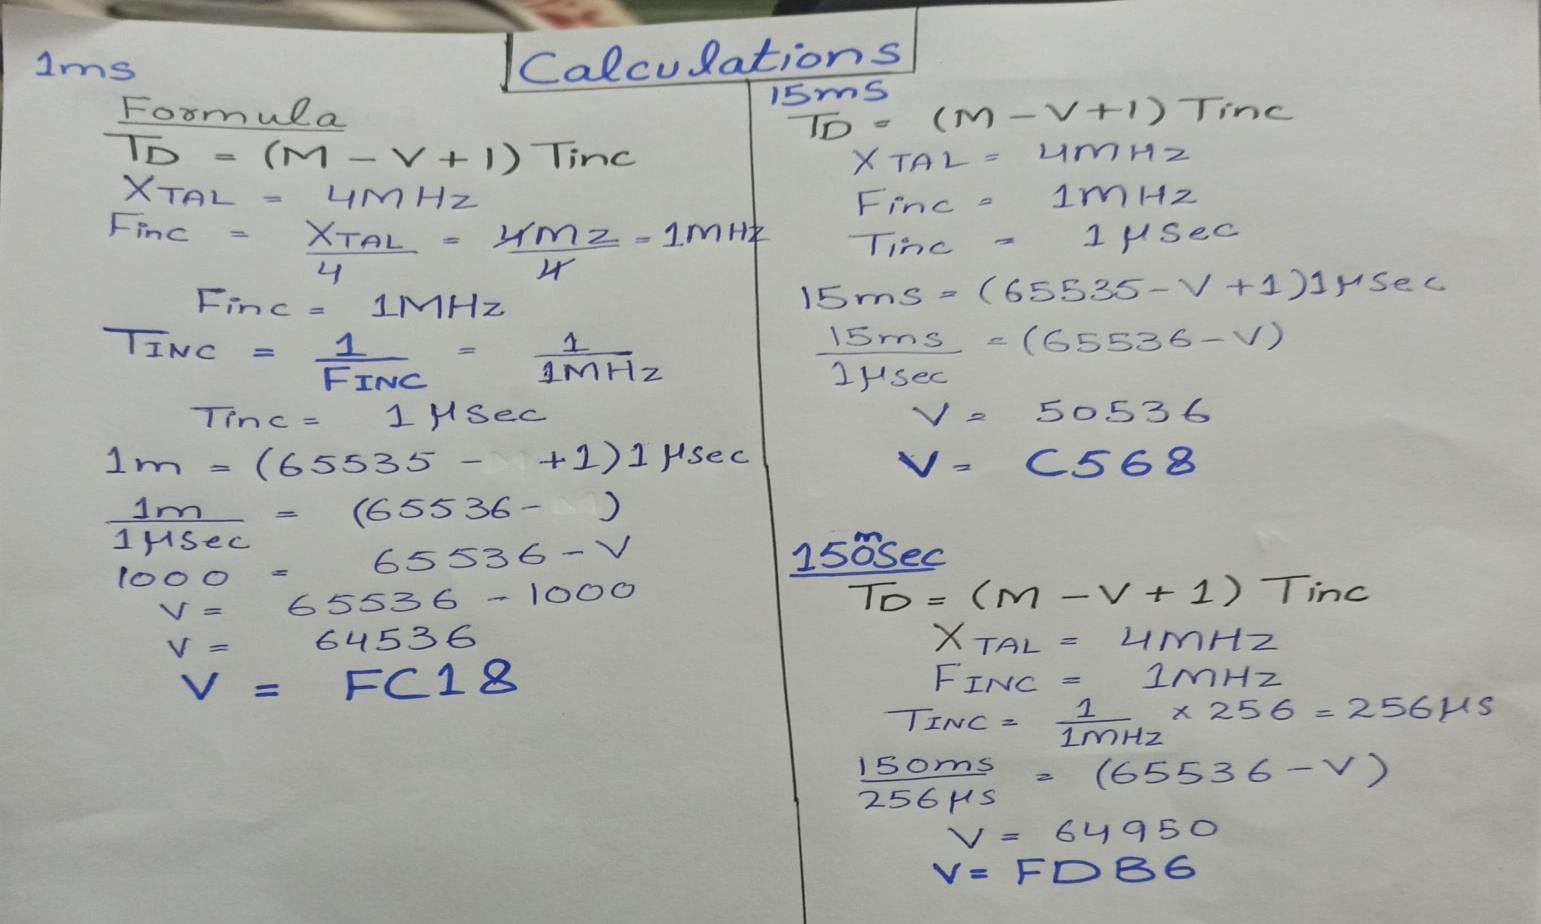 Calculations
1ms
Formula
TD = (M - V + 1) Tinc
XTAL = 4MHz
Finc = XTAL/4 = 4Mz/4 = 1MHz
Finc = 1MHz
TINC = 1/FINC = 1/1MHz
Tinc = 1 μsec
1m = (65535 - +1) 1 μsec
1m/1μsec = (65536 - )
1000 = 65536 - V
V = 65536 - 1000
V = 64536
V = FC18
15ms
TD = (M - V + 1) Tinc
XTAL = 4MHz
Finc = 1MHz
Tinc = 1 μsec
15ms = (65535 - V + 1) 1μsec
15ms/1μsec = (65536 - V)
V = 50536
V = C568
150msec
TD = (M - V + 1) Tinc
XTAL = 4MHz
FINC = 1MHz
TINC = 1/1MHz x 256 = 256μs
150ms/256μs = (65536 - V)
V = 64950
V = FDB6